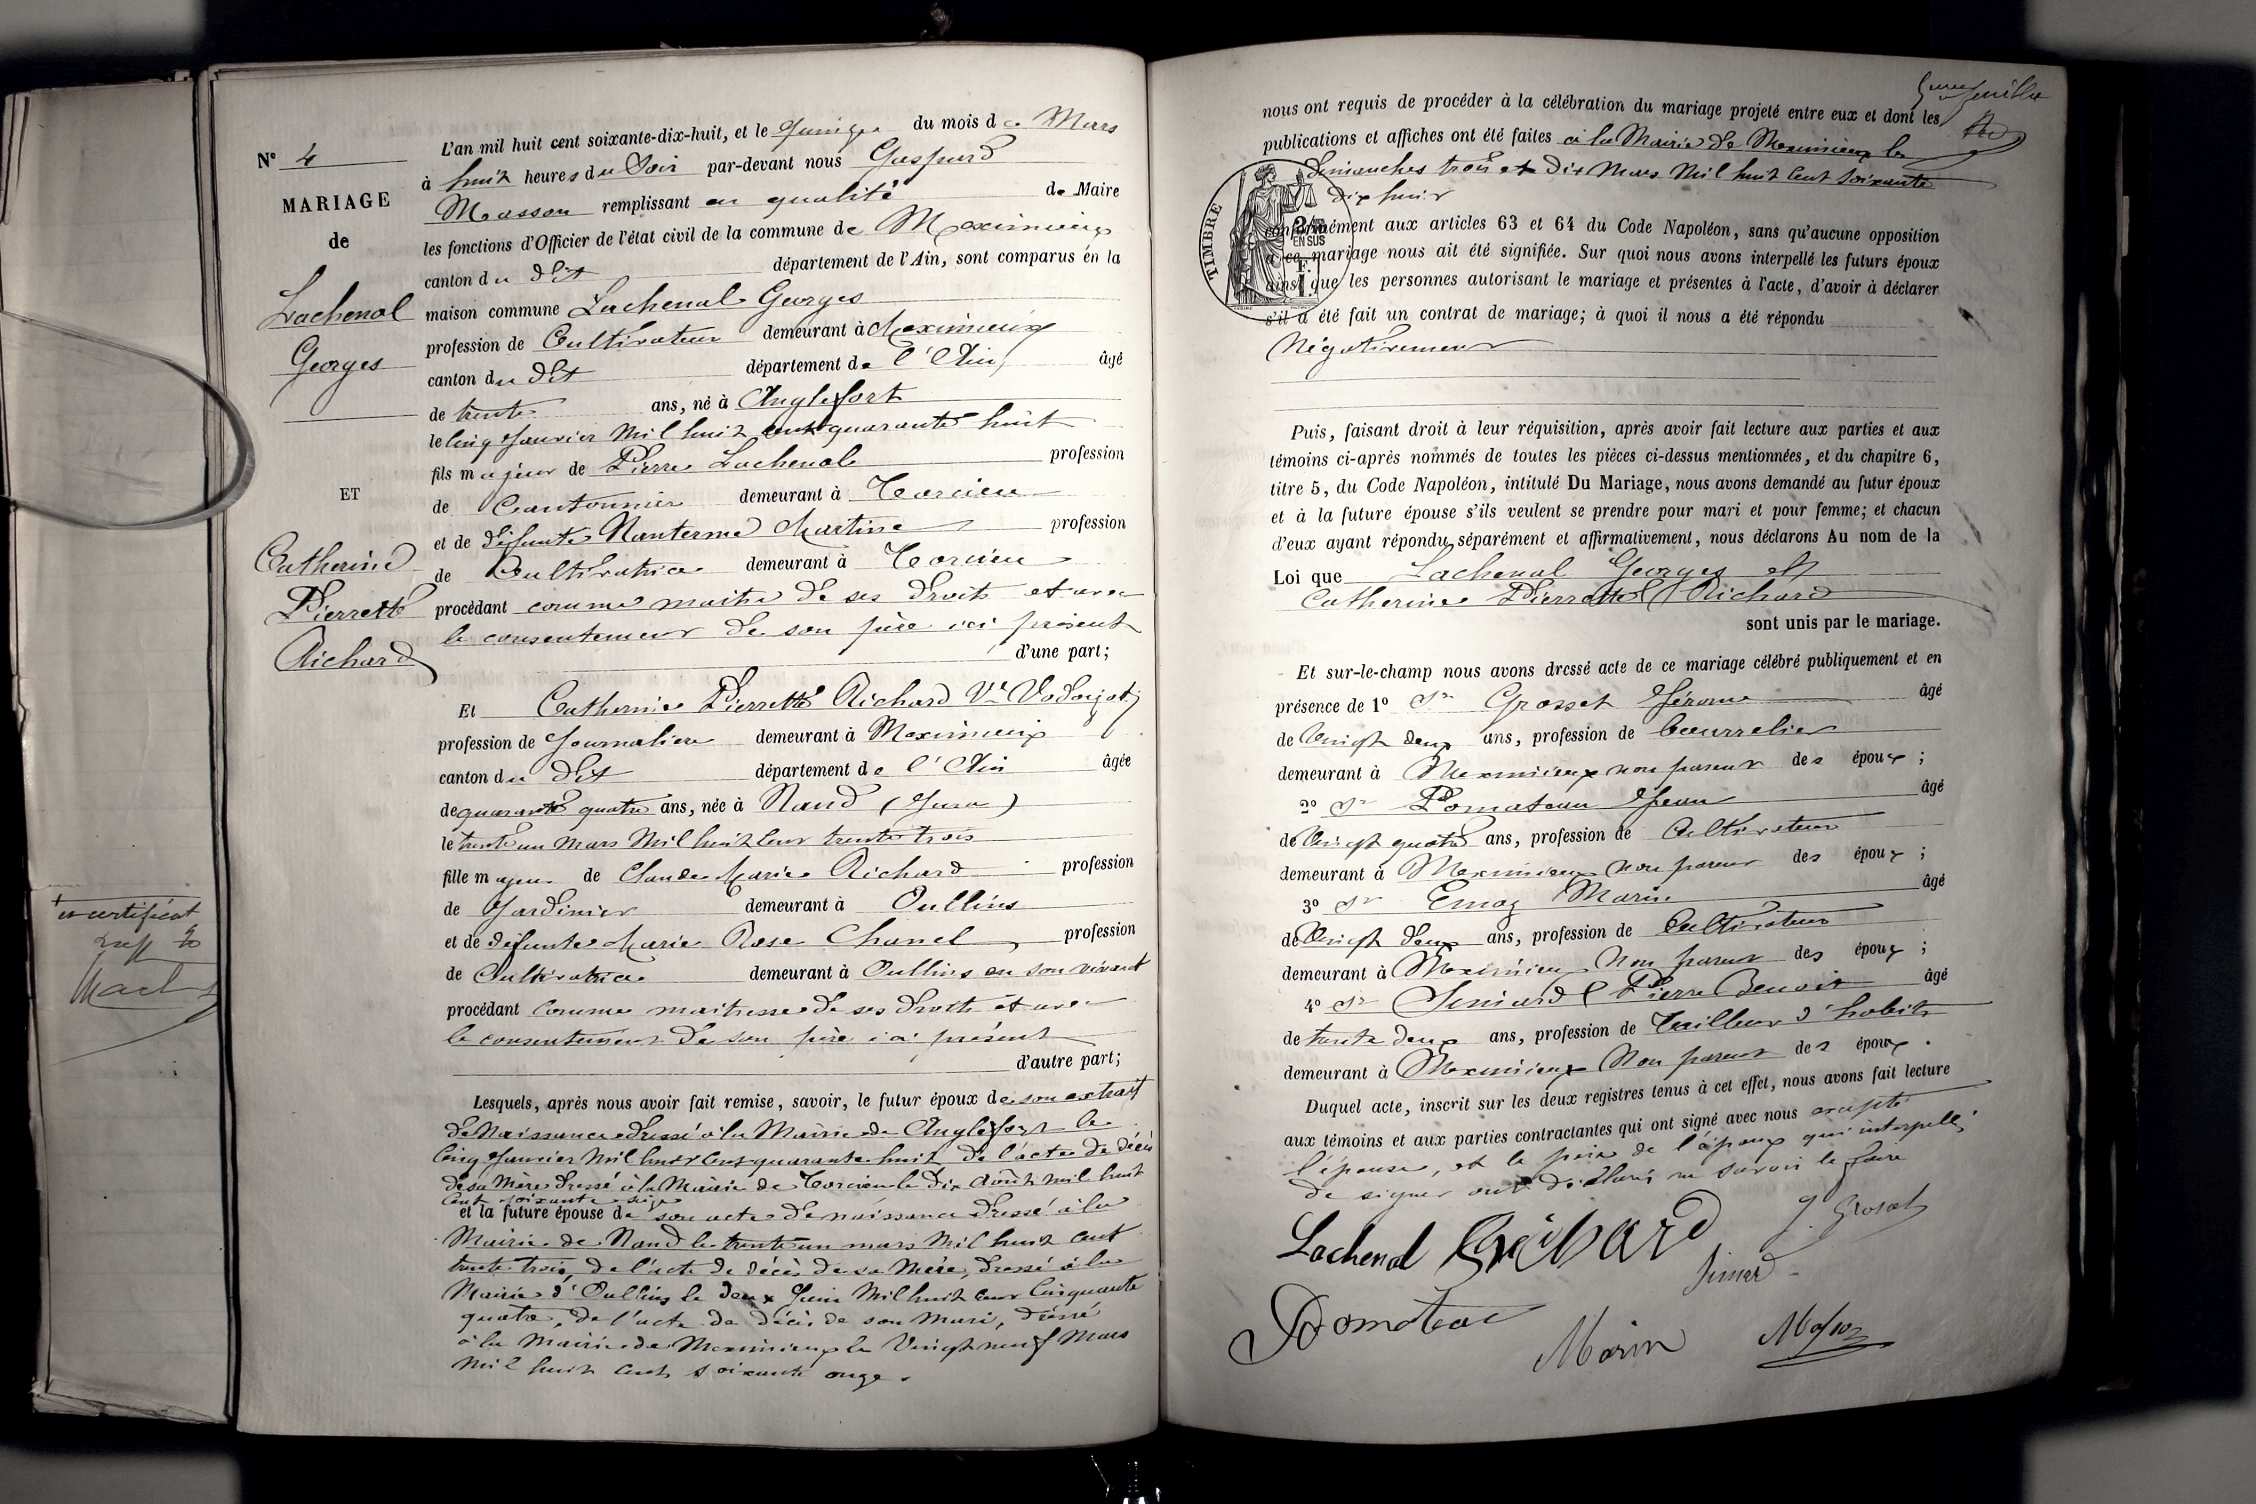 N° 4
MARIAGE
de
Lachenal
Georges
ET
Catherine
Pierrette
Richard
et certificat
L'an mil huit cent soixante-dix-huit, et le quinze du mois de Mars
à huit heures du Soir par-devant nous Gaspard
Masson remplissant en qualité de Maire
les fonctions d'Officier de l'état civil de la commune de Meximieux
canton du dit département de l'Ain, sont comparus en la
maison commune Lachenal Georges
profession de Cultivateur demeurant à Meximieux
canton du dit département de l'Ain âgé
de trente ans, né à Anglefort
le Cinq Janvier Mil huit cent quarante huit
fils majeur de Pierre Lachenal profession
de Cantonnier demeurant à Torcieu
et de défunte Nanterme Martine profession
de Cultivatrice demeurant à Torcieu
procédant comme maitre de ses droits et avec
le consentement de son père ici présent
d'une part;
Et Catherine Pierrette Richard Vve
profession de Journalière demeurant à Meximieux
canton du dit département de l'Ain âgée
de quarante quatre ans, née à Nand (Jura)
le trente un Mars Mil huit Cent trente trois
fille majeure de Claude Marie Richard profession
de Jardinier demeurant à Oullins
et de défunte Marie Rose Chanel profession
de Cultivatrice demeurant à Oullins en son vivant
procédant comme maitresse de ses droits et avec
le consentement de son père ici présent
d'autre part;
Lesquels, après nous avoir fait remise, savoir, le futur époux de son extrait
de Naissance dressé à la Mairie de Anglefort le
Cinq Janvier Mil huit Cent quarante huit de l'acte de décès
de sa Mère dressé à la Mairie de Torcieu le Dix Août mil huit
Cent soixante seize
et la future épouse de son acte de naissance dressé à la
Mairie de Nand le trente un mars Mil huit cent
trente trois, de l'acte de décès de sa Mère, dressé à la
Mairie d'Oullins le deux Juin Mil huit cent Cinquante
quatre, de l'acte de décès de son Mari, dressé
à la Mairie de Meximieux le Vingt neuf Mars
Mil huit cent soixante onze.
nous ont requis de procéder à la célébration du mariage projeté entre eux et dont les
publications et affiches ont été faites à la Mairie de Meximieux les
Dimanches trois et Dix Mars Mil huit Cent Soixante
dix huit
TIMBRE
2/10
EN SUS
conformément aux articles 63 et 64 du Code Napoléon, sans qu'aucune opposition
à ce mariage nous ait été signifiée. Sur quoi nous avons interpellé les futurs époux
ainsi que les personnes autorisant le mariage et présentes à l'acte, d'avoir à déclarer
s'il a été fait un contrat de mariage; à quoi il nous a été répondu
Négativement
Puis, faisant droit à leur réquisition, après avoir fait lecture aux parties et aux
témoins ci-après nommés de toutes les pièces ci-dessus mentionnées, et du chapitre 6,
titre 5, du Code Napoléon, intitulé Du Mariage, nous avons demandé au futur époux
et à la future épouse s'ils veulent se prendre pour mari et pour femme; et chacun
d'eux ayant répondu séparément et affirmativement, nous déclarons Au nom de la
Loi que Lachenal Georges et
Catherine Pierrette Richard
sont unis par le mariage.
Et sur-le-champ nous avons dressé acte de ce mariage célébré publiquement et en
présence de 1° Sr Grosset Jérome âgé
de Vingt deux ans, profession de bourrelier
demeurant à Meximieux non parent des époux;
2° Sr Pomateau Jean âgé
de Vingt quatre ans, profession de Cultivateur
demeurant à Meximieux Non parent des époux;
3° Sr Marin âgé
de Vingt deux ans, profession de Cultivateur
demeurant à Meximieux Non parent des époux;
4° Sr Simiard Pierre Benoit âgé
de trente deux ans, profession de Tailleur d'habits
demeurant à Meximieux Non parent des époux.
Duquel acte, inscrit sur les deux registres tenus à cet effet, nous avons fait lecture
aux témoins et aux parties contractantes qui ont signé avec nous excepté
l'épouse, et le père de l'époux qui interpellés
de signer ont déclaré ne savoir le faire
Lachenal Richard J. Grosset
Marin Masson